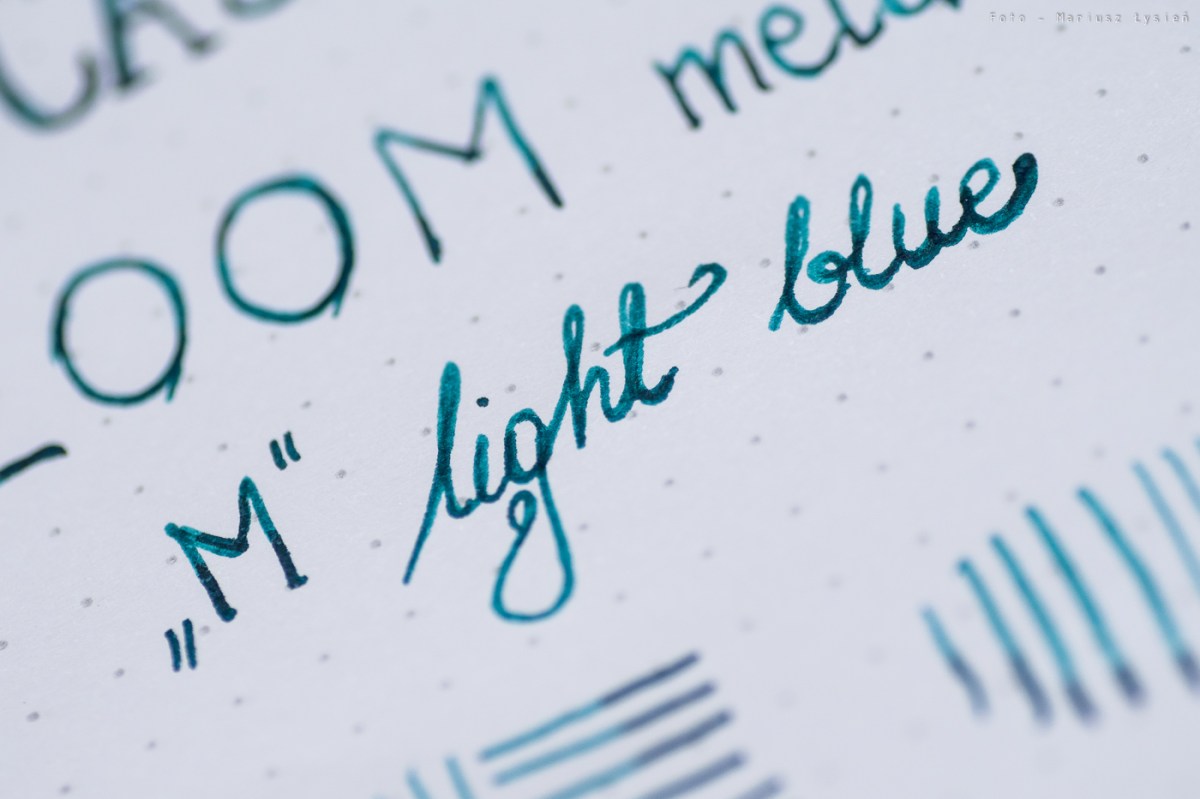 Foto - Mariusz Łysień
OOM
„M" light blue